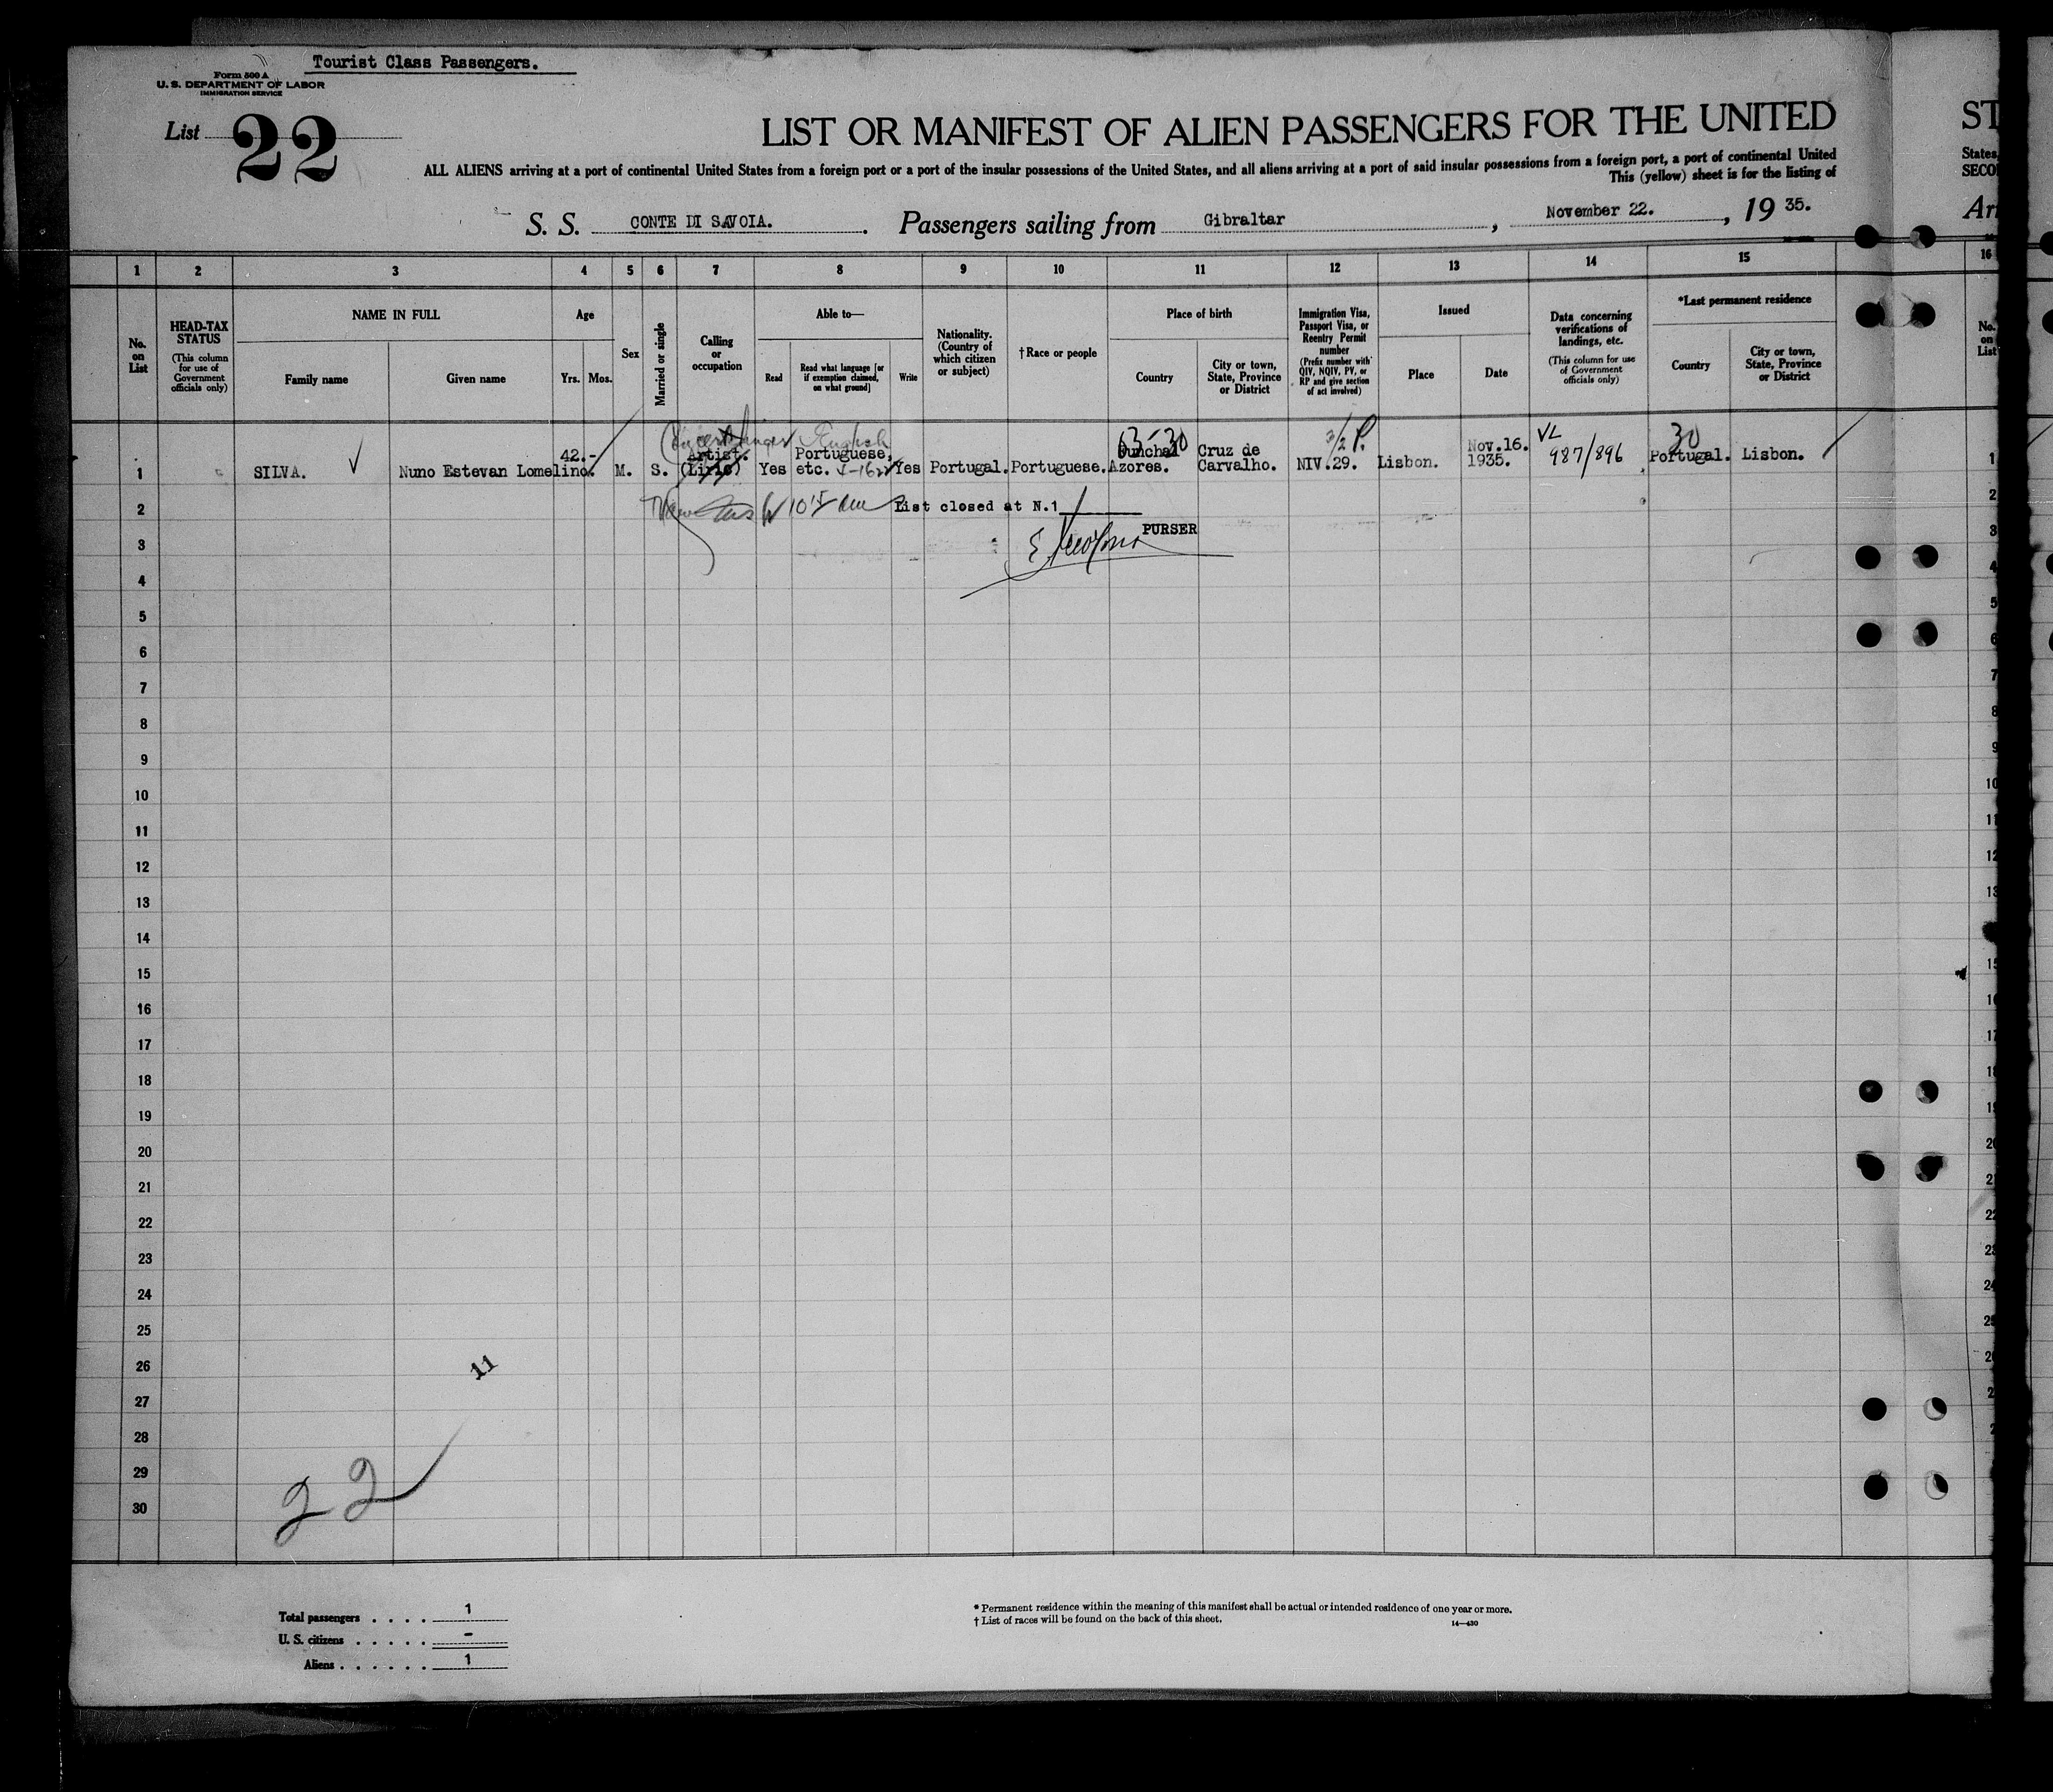 Tourist Class Passengers.
Form 500 A
U. S. DEPARTMENT OF LABOR
IMMIGRATION SERVICE
List 22
LIST OR MANIFEST OF ALIEN PASSENGERS FOR THE UNITED
ST
ALL ALIENS arriving at a port of continental United States from a foreign port or a port of the insular possessions of the United States, and all aliens arriving at a port of said insular possessions from a foreign port, a port of continental United
States,
This (yellow) sheet is for the listing of
SECO
S. S. CONTE DI SAVOIA. Passengers sailing from Gibraltar, November 22., 19 35.
1 2 3 4 5 6 7 8 9 10 11 12 13 14 15 16
No. on List
HEAD-TAX STATUS
(This column for use of Government officials only)
NAME IN FULL
Family name
Given name
Age
Yrs. Mos.
Sex
Married or single
Calling or occupation
Able to—
Read
Read what language [or if exemption claimed, on what ground]
Write
Nationality. (Country of which citizen or subject)
†Race or people
Place of birth
Country
City or town, State, Province or District
Immigration Visa, Passport Visa, or Reentry Permit number
(Prefix number with QIV, NQIV, PV, or RP and give section of act involved)
Issued
Place
Date
Data concerning verifications of landings, etc.
(This column for use of Government officials only)
*Last permanent residence
Country
City or town, State, Province or District
No. on List
English
63-30
3/2 P.
VL
30
42.- Artist. Portuguese, Funchal Cruz de Nov.16.
987/896
1 SILVA. Nuno Estevan Lomelino. M. S. (Liric) Yes etc. Yes Portugal. Portuguese. Azores. Carvalho. NIV.29. Lisbon. 1935. Portugal. Lisbon. 1
2 List closed at N.1 2
PURSER
3
4
5
6
7
8
9
10
11
12
13
14
15
16
17
18
19
20
21
22
23
24
25
26
27
28
29
30
11
22
Total passengers . . . . 1
U. S. citizens . . . . . -
Aliens . . . . . . 1
* Permanent residence within the meaning of this manifest shall be actual or intended residence of one year or more.
† List of races will be found on the back of this sheet.
14—430